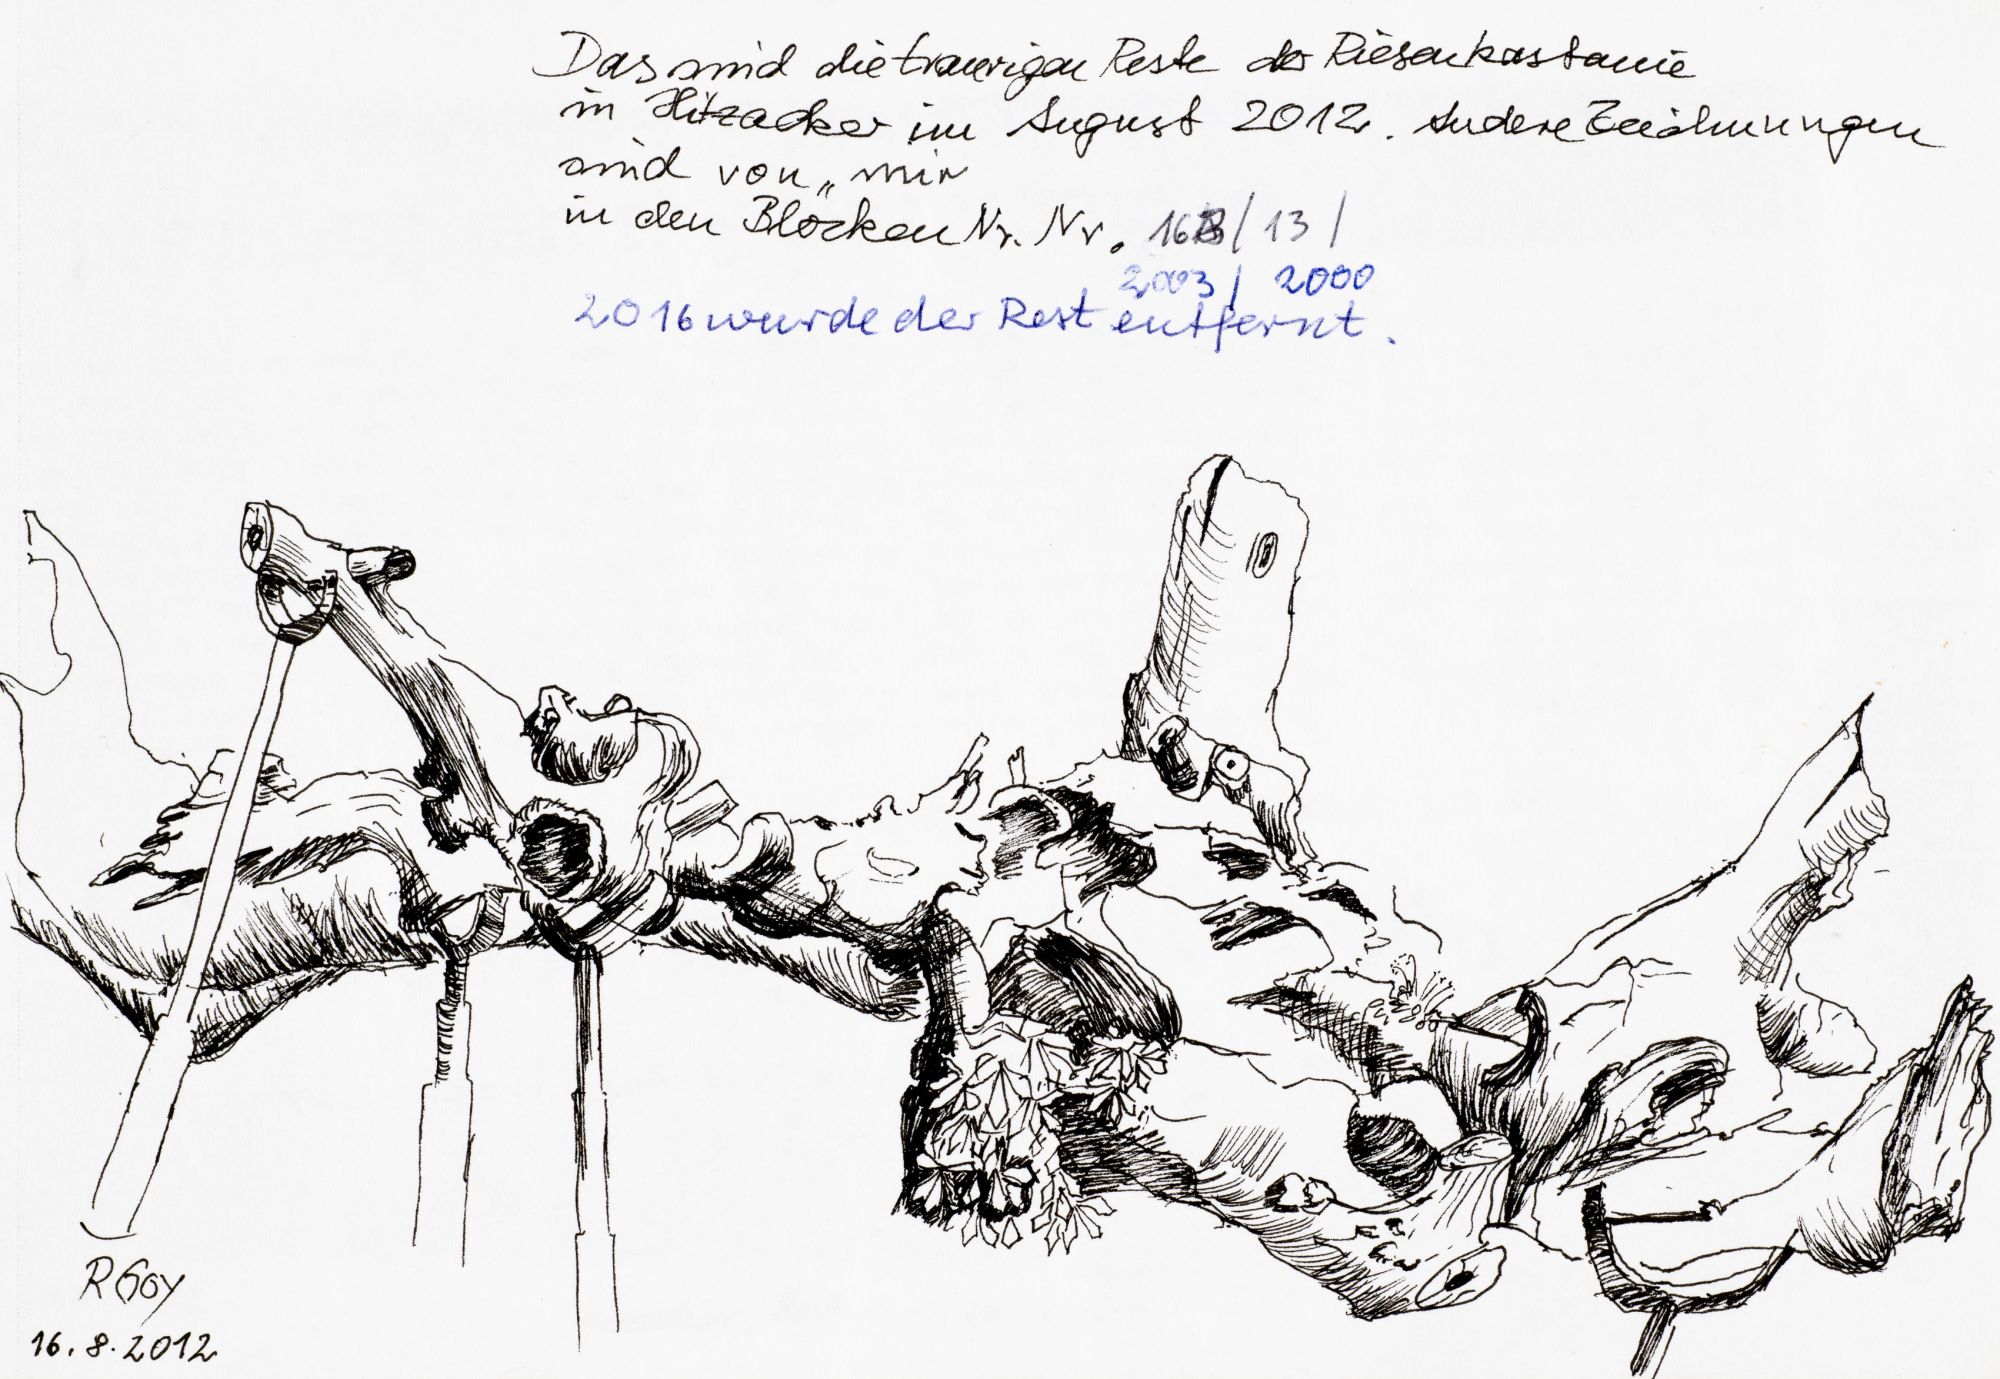 Das sind die traurigen Reste der Riesenkastanie
in Hitzacker im August 2012. Andere Zeichnungen
sind von „ mir
in den Blöcken Nr. Nr. / 13 /
2003 / 2000
2016 wurde der Rest entfernt.
R Goy
16.8.2012